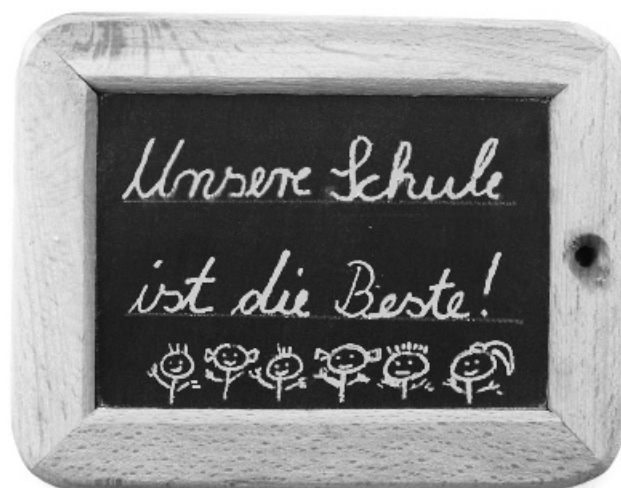 Unsere Schule
ist die Beste!